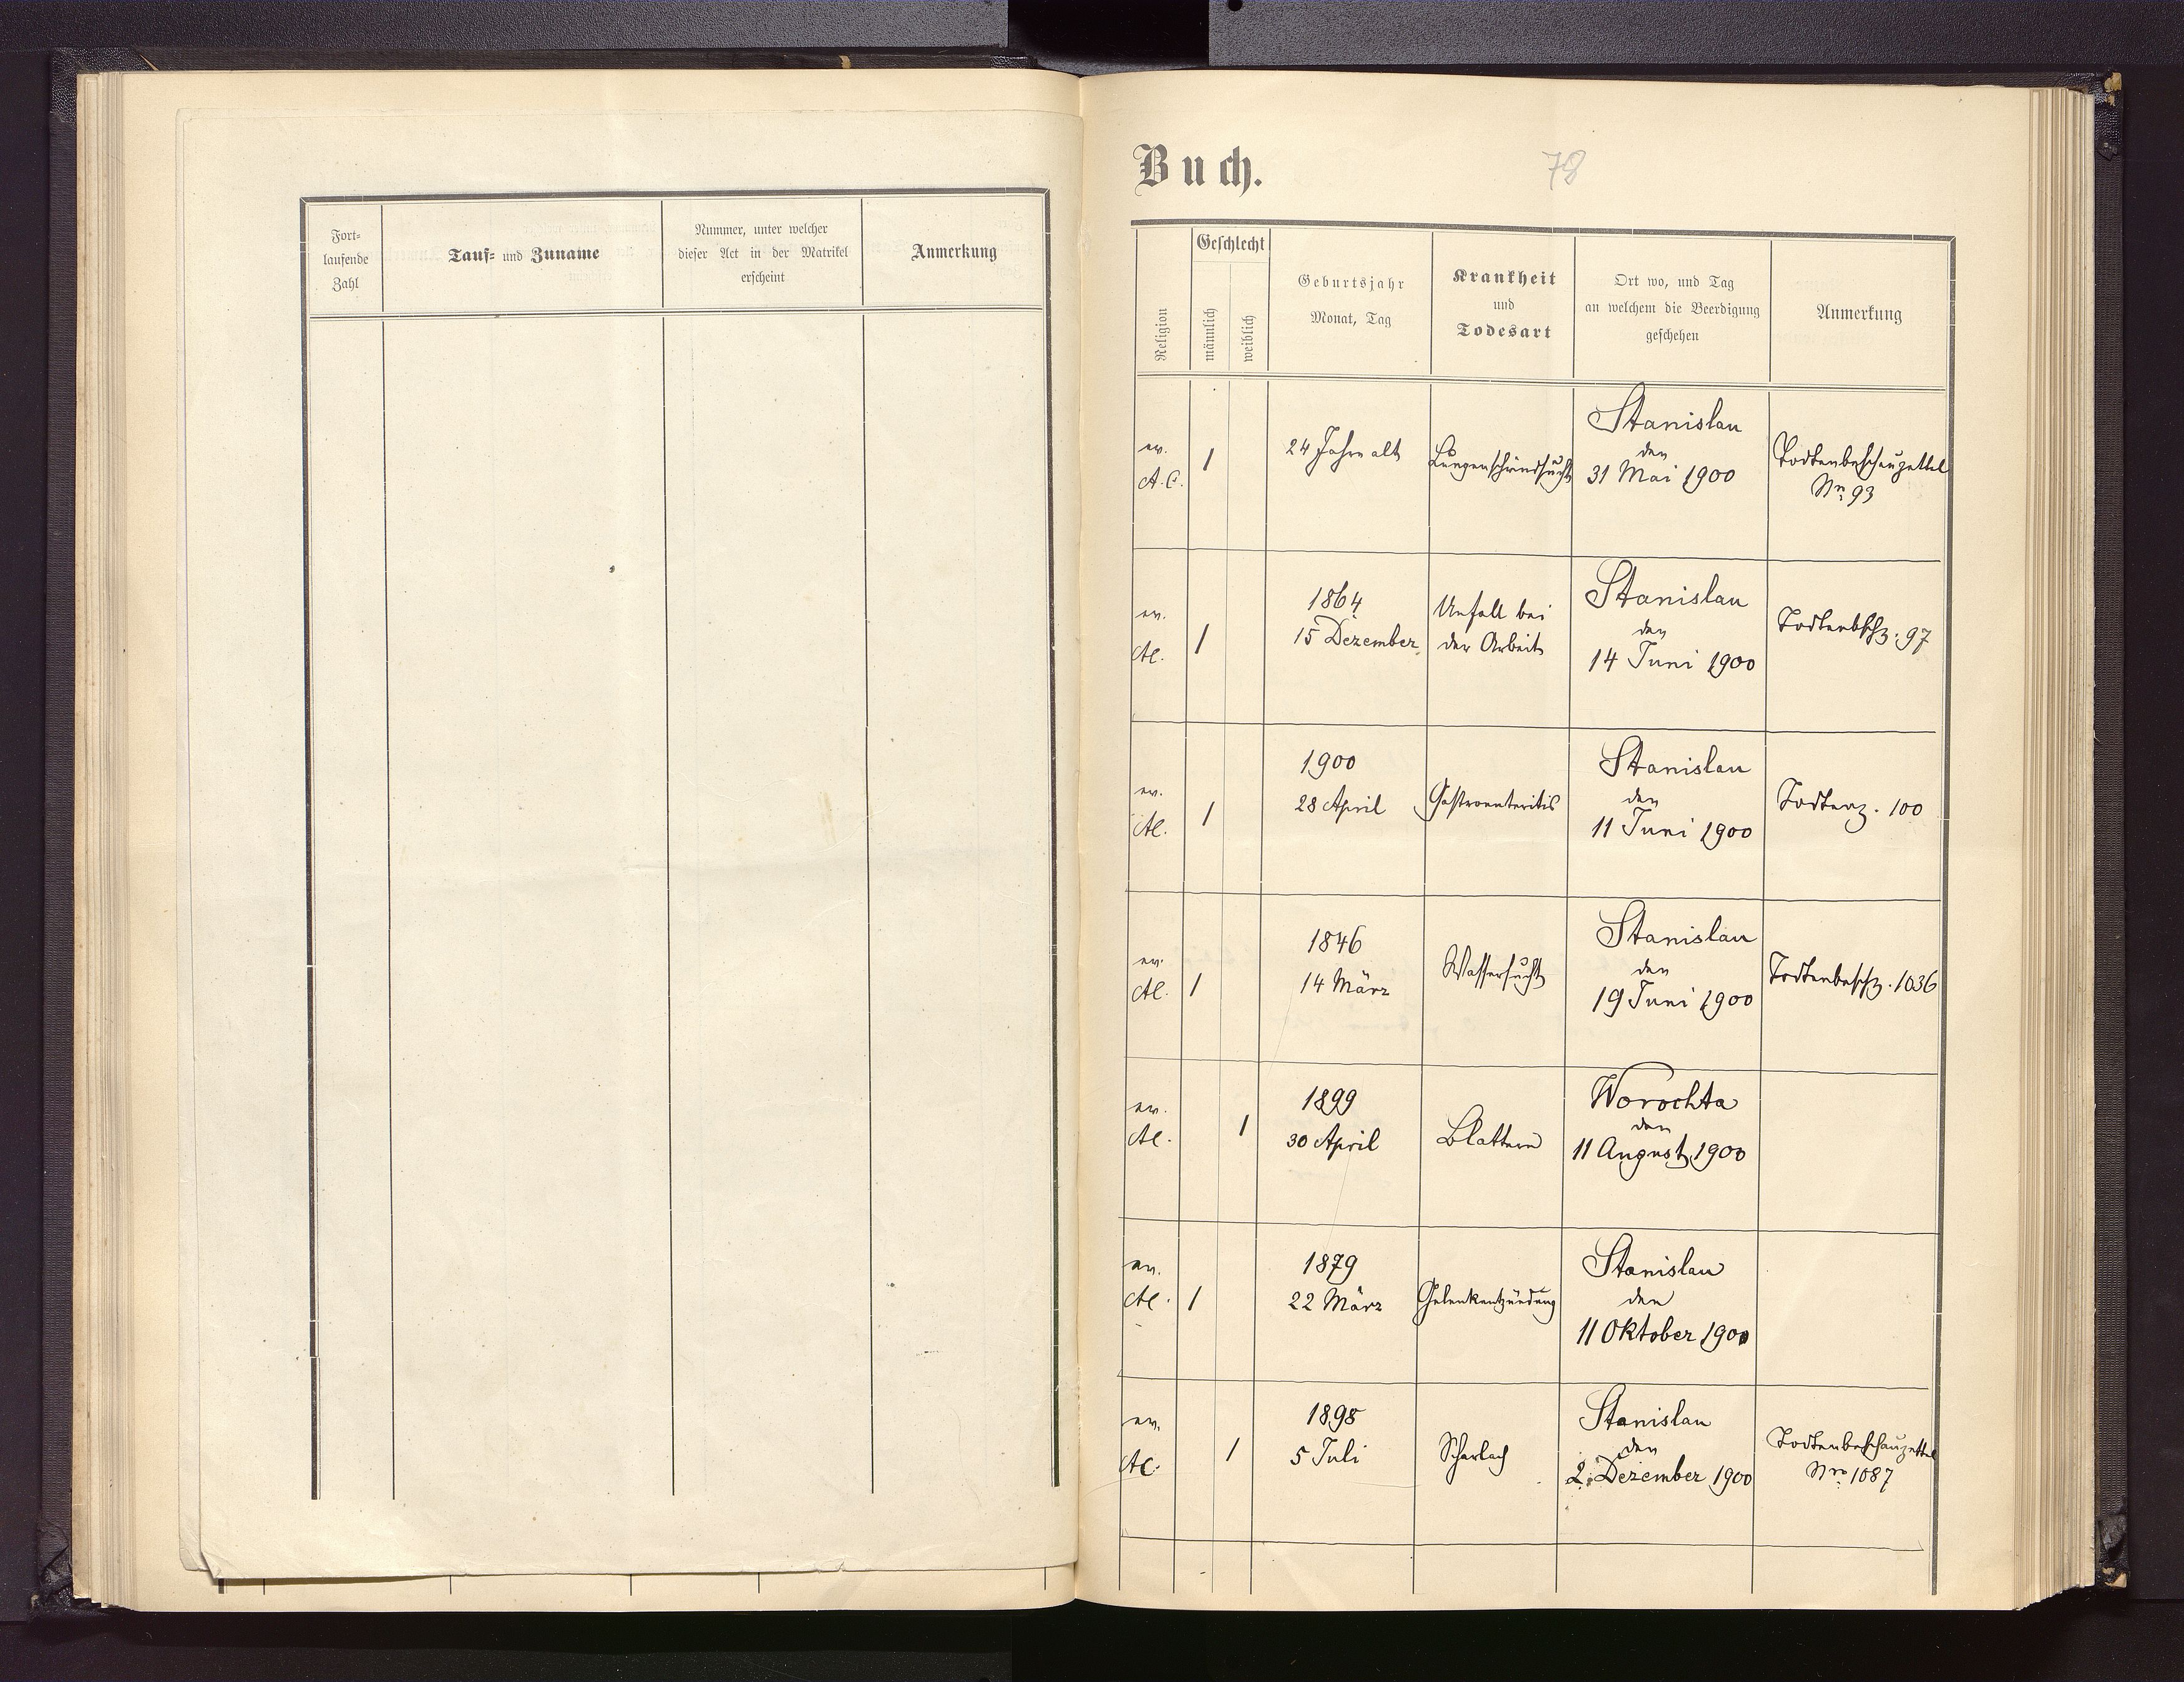 Fort-
laufende
Zahl
Tauf- und Zuname
Nummer, unter welcher
dieser Act in der Matrikel
erscheint
Anmerkung
Buch.
78
Religion
Geschlecht
männlich
weiblich
Geburtsjahr
Monat, Tag
Krankheit
und
Todesart
Ort wo, und Tag
an welchem die Beerdigung
geschehen
Anmerkung
ev.
A.C.
1
24 Jahre alt
Lungenschwindsucht
Stanislau
den
31 Mai 1900
Todtenbeschauzettel
Nro 93
ev.
AC.
1
1864
15 Dezember
Unfall bei
der Arbeit
Stanislau
den
14 Juni 1900
Todtenbschz. 97
ev.
AC.
1
1900
28 April
Gastroenteritis
Stanislau
den
11 Juni 1900
Todtenz. 100
ev.
AC.
1
1846
14 März
Wassersucht
Stanislau
den
19 Juni 1900
Todtenbeschz. 1036
ev.
AC.
1
1899
30 April
Blattern
Worochta
den
11 August 1900
ev.
AC.
1
1879
22 März
Gelenkentzündung
Stanislau
den
11 Oktober 1900
ev.
AC.
1
1898
5 Juli
Scharlach
Stanislau
den
2. Dezember 1900
Todtenbeschauzettel
Nro 1087